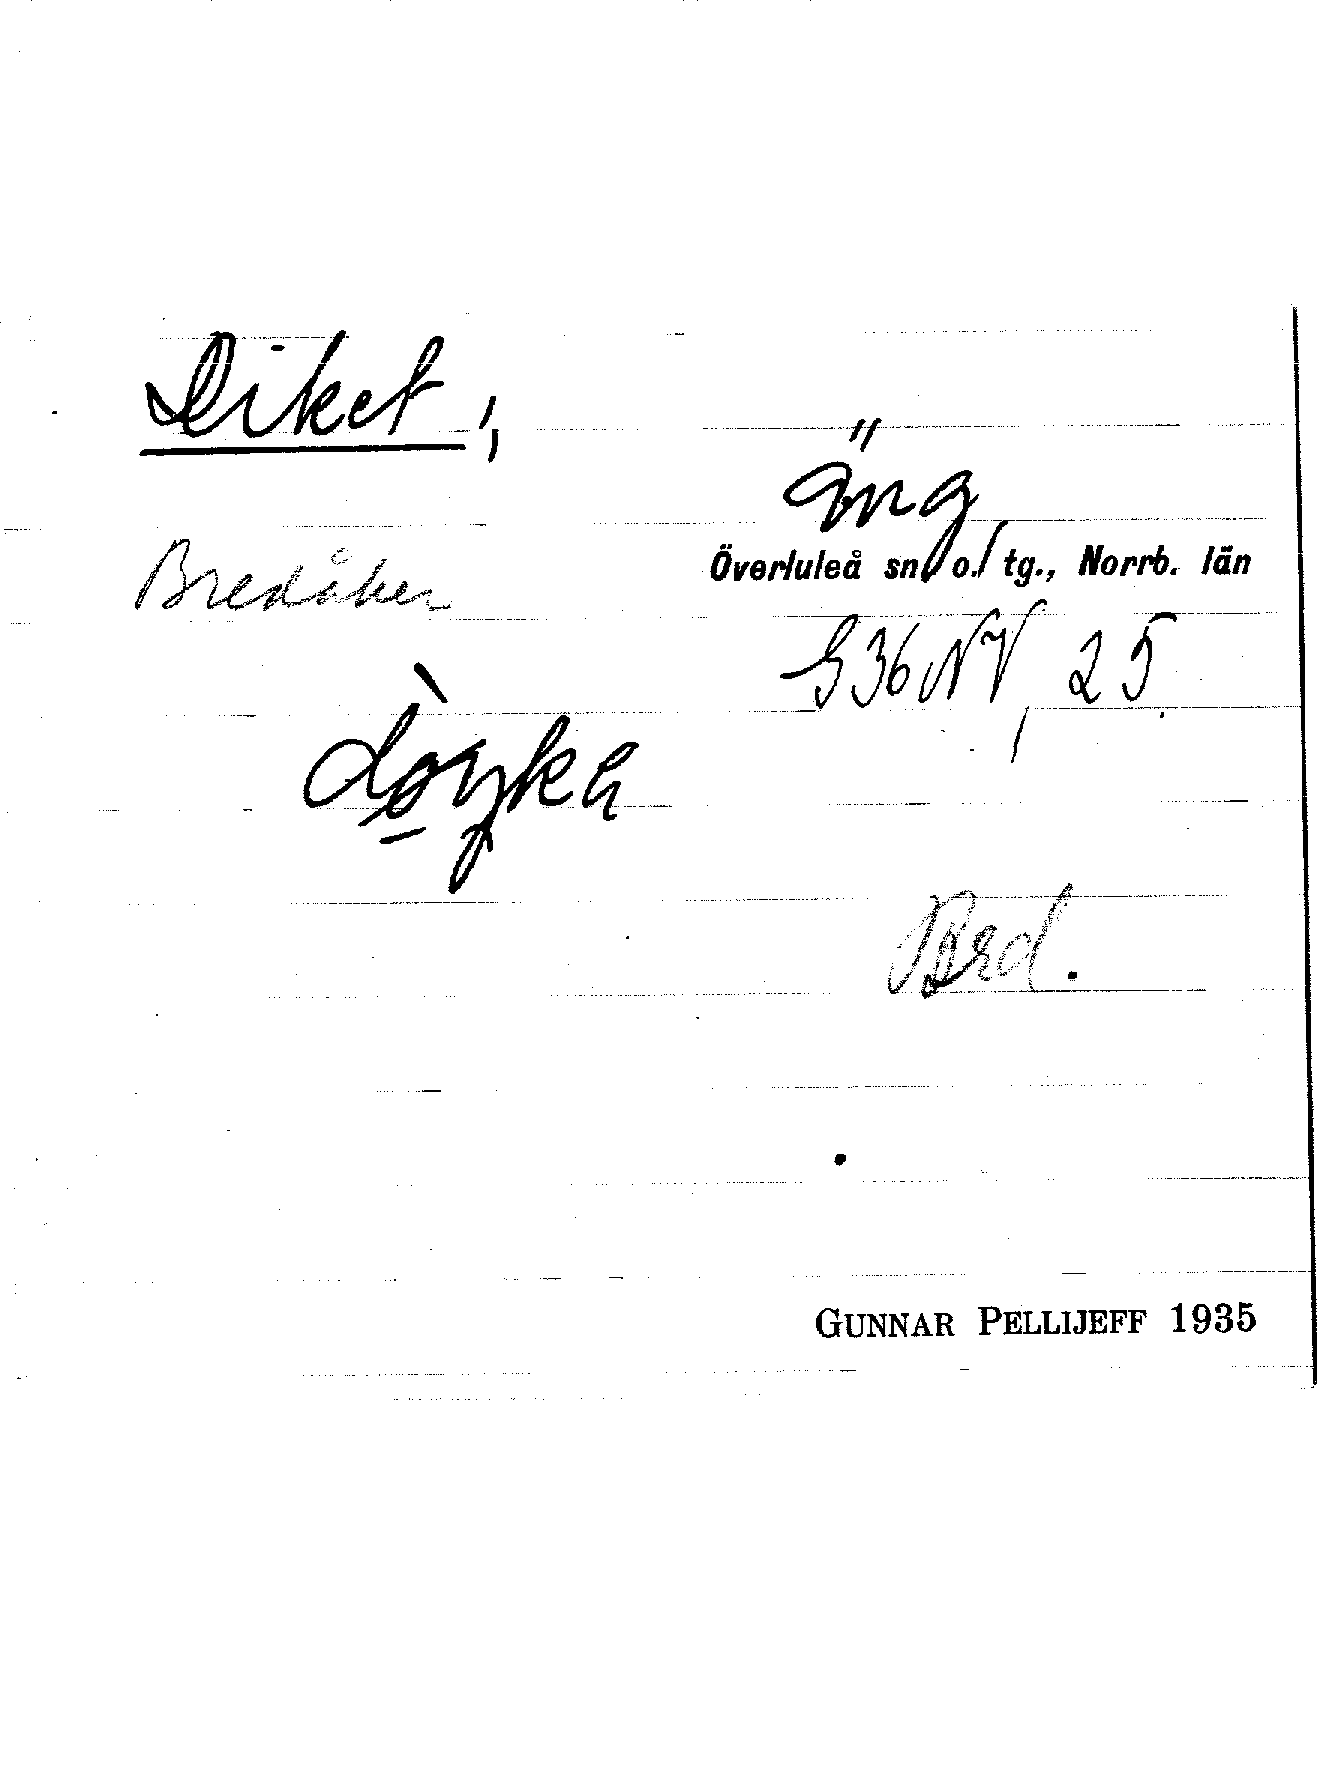 Diket,
äng
Bredåker
Överluleå sn o. tg., Norrb. län
S36NV, 25
Brd.
GUNNAR PELLIJEFF 1935